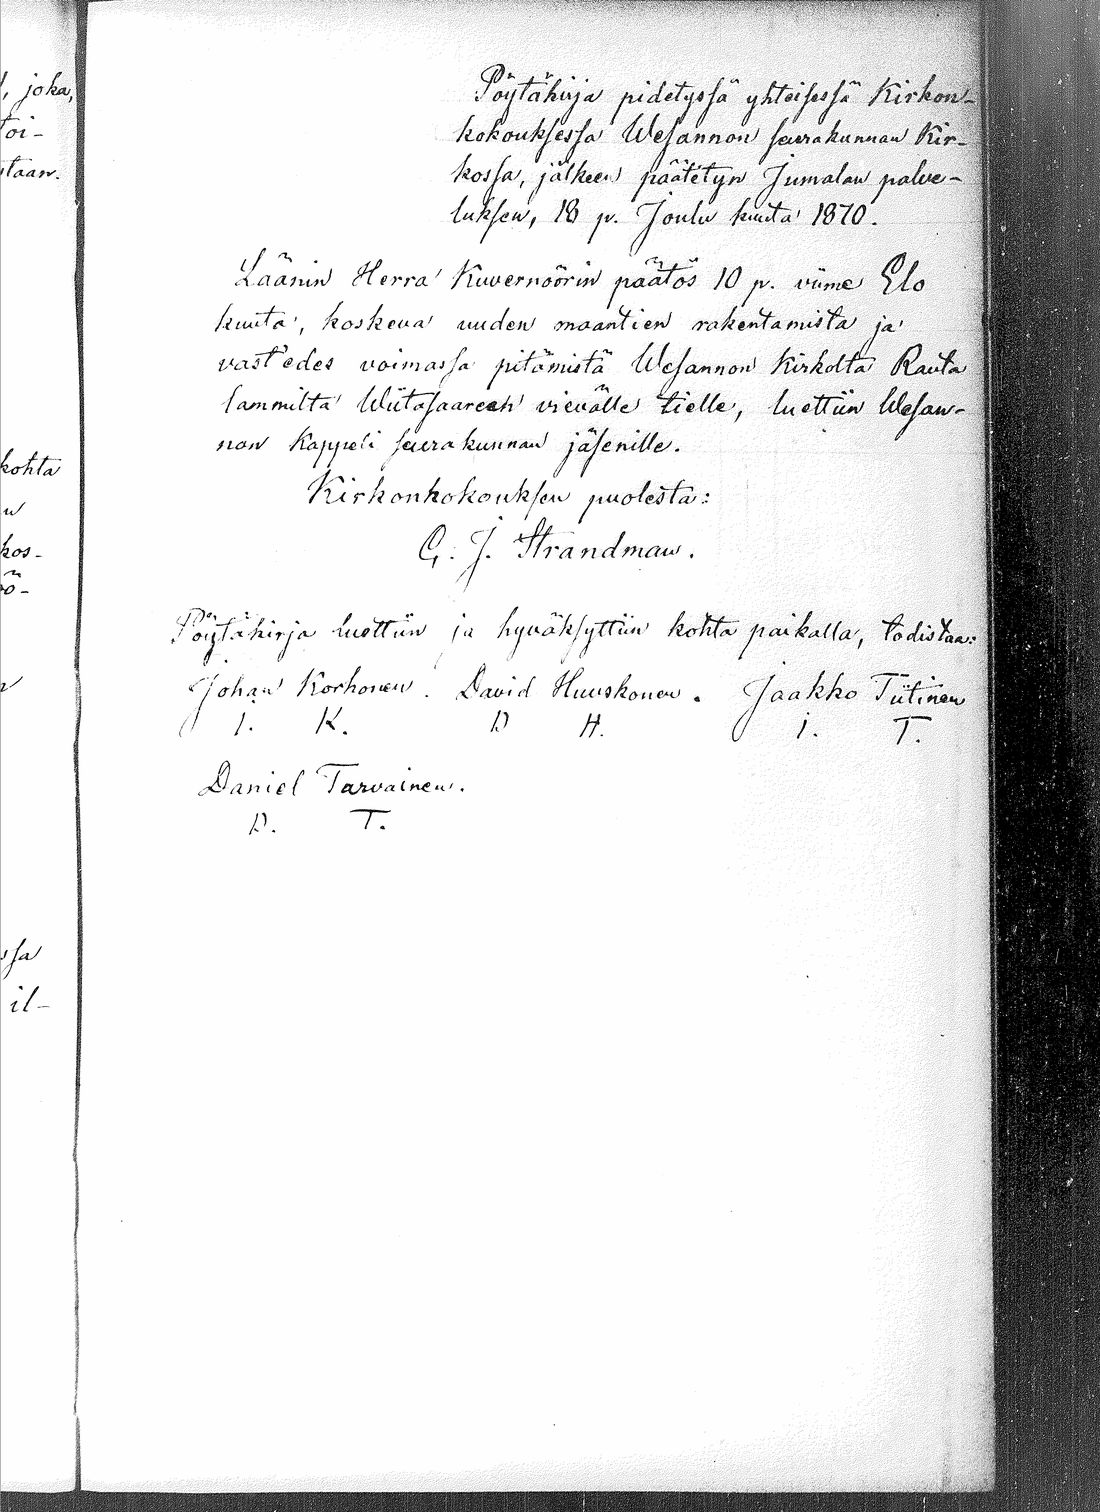 Pöytäkirja pidetyssä yhteisessä Kirkon-
kokouksessa Wesannon seurakunnan Kir-
kossa, jälkeen päätetyn Jumalan palve-
luksen, 18 p. Joulu kuuta 1870.
Läänin Herra Kuvernöörin päätös 10 p. viime Elo
kuuta, koskeva uuden maantien rakentamista ja
vast'edes voimassa pitämistä Wesannon Kirkolta Rauta
lammilta Wiitasaareen vievälle tielle, luettiin Wesan-
non Kappeli seurakunnan jäsenille.
Kirkonkokouksen puolesta:
G. J. Strandman.
Pöytäkirja luettiin ja hyväksyttiin kohta paikalla, todistaa:
Johan Korhonen. David Huuskonen. Jaakko Tiitinen
J. K. D H. J. T.
Daniel Tarvainen.
D. T.
, joka,
toi-
staan.
kohta
kos-
ssa
il-